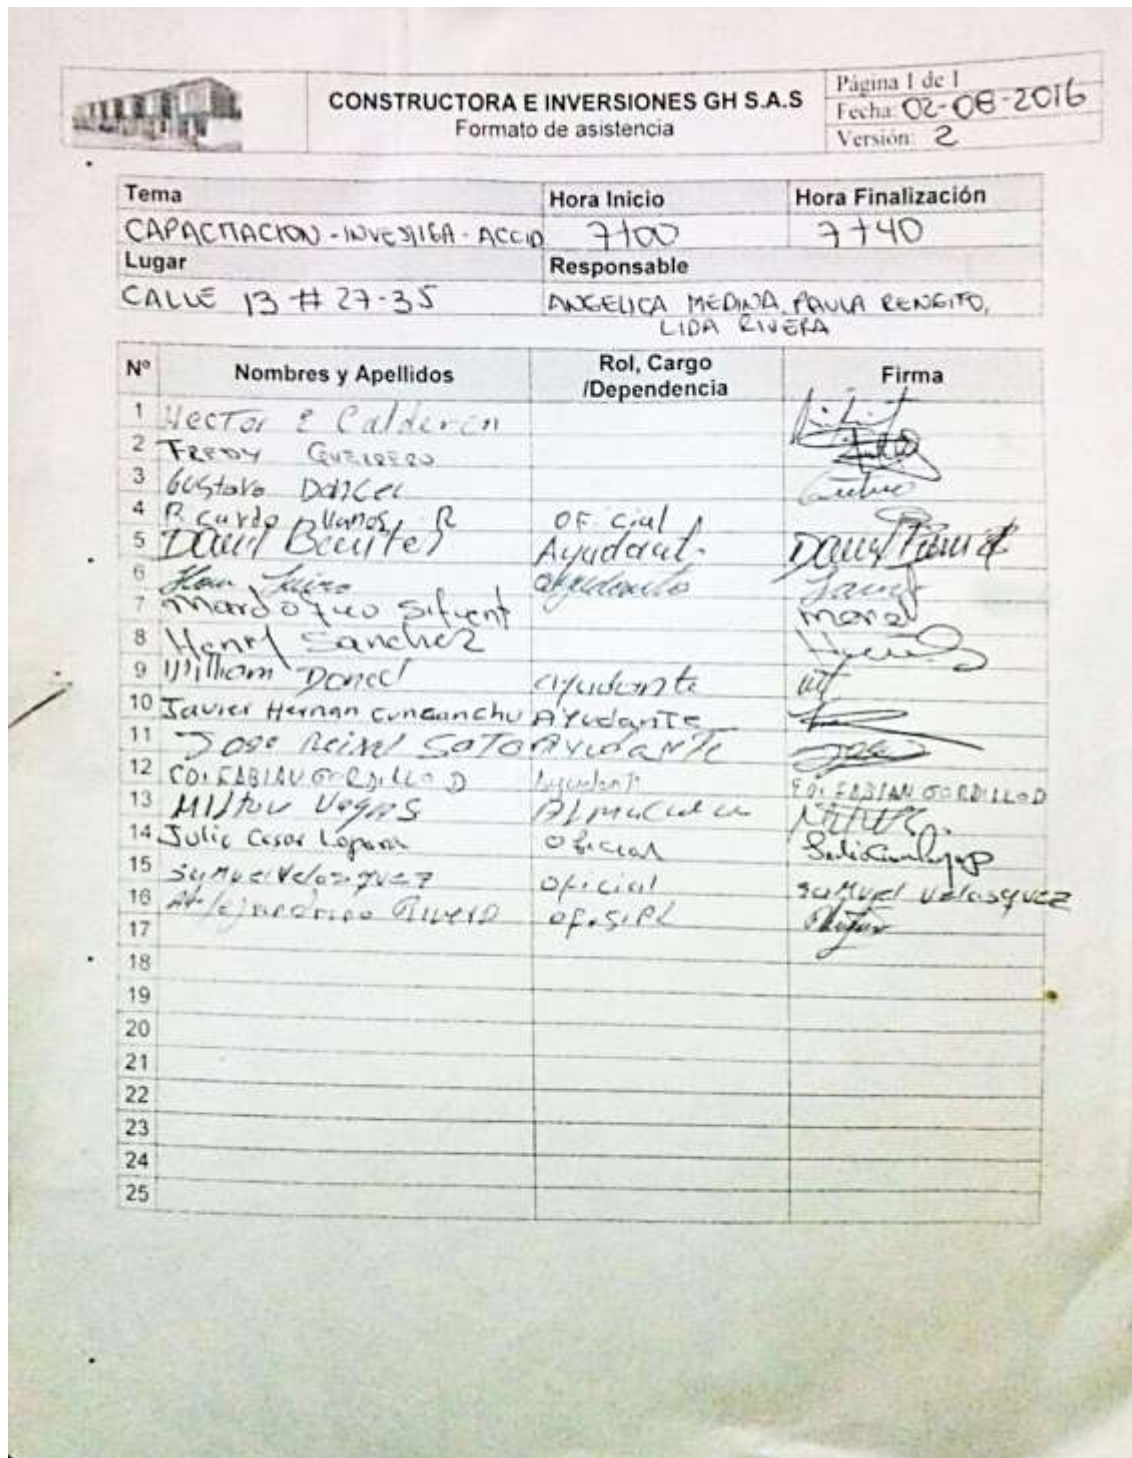 CONSTRUCTORA E INVERSIONES GH S.A.S
Formato de asistencia
Página 1 de 1
Fecha: 02-08-2016
Versión: 2
Tema Hora Inicio Hora Finalización
CAPACITACION - INVESTIGA - ACCID 7+00 7+40
Lugar Responsable
CALLE 13 # 27-35 ANGELICA MEDINA, PAULA RENGIFO,
LIDA RIVERA
Nº Nombres y Apellidos Rol, Cargo /Dependencia Firma
1 Hector E Calderon
2 FREDY GUERRERO
3 Gustavo
4 Ricardo Llanos R OFicial
5 David Benites Ayudant.
6 Jairo
7 Mardoqueo Sifuent
8 Henry Sanchez
9 William ayudante
10 Javier Hernan Cuncanchu AYudanTe
11 Jose Reinel SOTO AYudanTe
12 EDI FABIAN GORDILLO D Ayudant EDI FABIAN GORDILLO D
13 Milton Vegas
14 Julio Cesar Oficial
15 Samuel Velasquez oficial Samuel Velasquez
16 Rivera
17
18
19
20
21
22
23
24
25